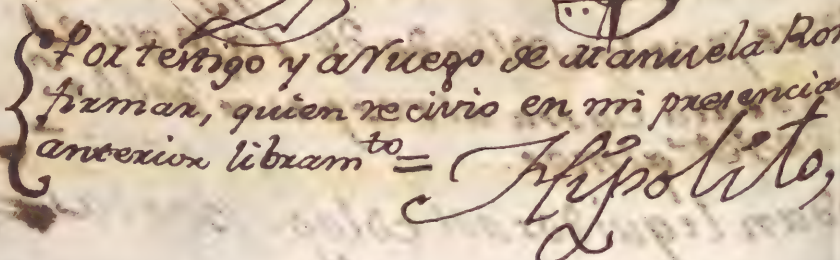 Por testigo y a Ruego de Manuela Ro
firmar, quien recivio en mi presencia
anterior libramto =
Hipolito,